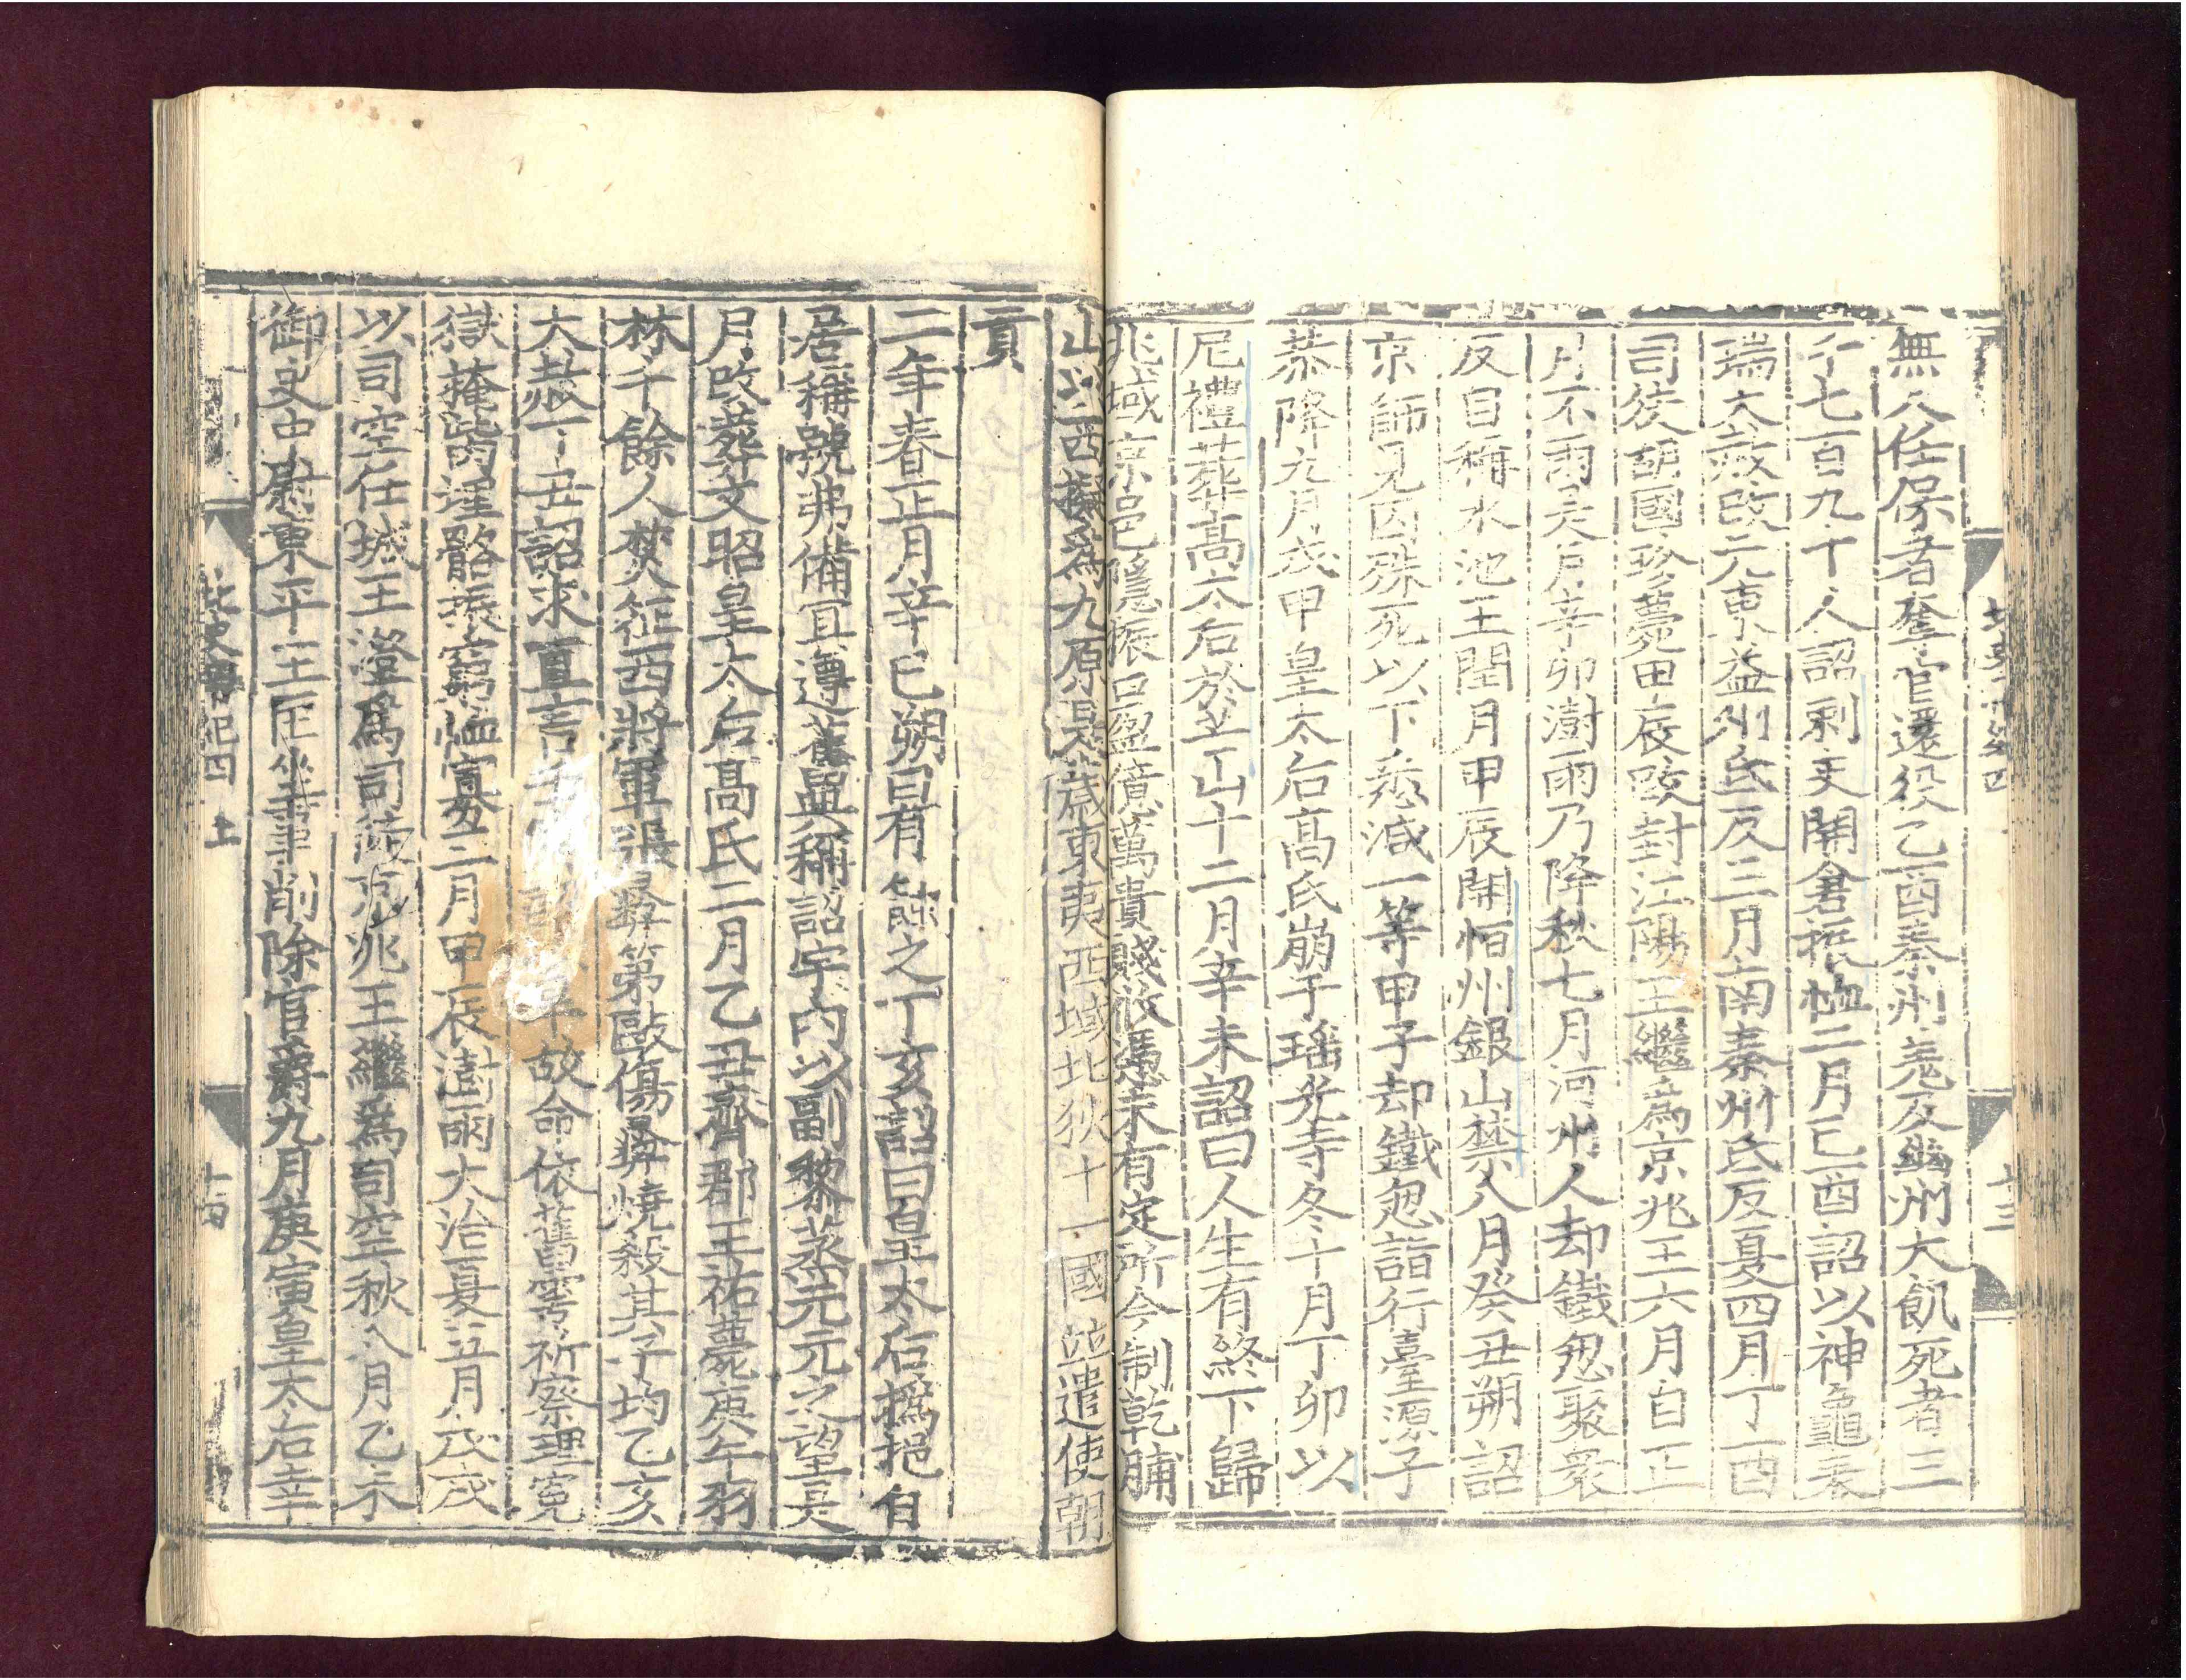 無人任保者奪官還役乙酉秦州羌反幽州大飢死者三
千七百九十人詔刺史開倉振恤二月己酉詔以神龜表
瑞大赦改元東益州氐反三月南秦州氐反夏四月丁酉
司徒胡國珍薨甲辰改封江陽王繼爲京兆王六月自正
月不雨是月辛卯澍雨乃降秋七月河州人却鐵怱聚衆
反自稱水池王閏月甲辰開恒州銀山禁八月癸丑朔詔
京師見囚殊死以下悉減一等甲子却鐵怱詣行臺源子
恭降九月戊申皇太后高氏崩于瑤光寺冬十月丁卯以
尼禮葬高太后於芒山十二月辛未詔曰人生有終下歸
兆域京邑隱振口盈億萬貴賤攸憑未有定所今制乾脯
山以西擬爲九原是歲東夷西域北狄十一國並遣使朝
貢
二年春正月辛巳朔日有蝕之丁亥詔曰皇太后撝挹自
居稱號弗備宜遵舊典稱詔宇內以副黎蒸元元之望是
月改葬文昭皇太后高氏二月乙丑齊郡王祐薨庚午羽
林千餘人焚征西將軍張彝第毆傷彝燒殺其子均乙亥
大赦丁丑詔求直言 故命依舊雩祈察理冤
獄掩胔埋骼振窮恤寡三月甲辰澍雨大洽夏五月戊戌
以司空任城王澄爲司徒京兆王繼爲司空秋八月乙未
御史中尉東平王匡坐事削除官爵九月庚寅皇太后幸
北史 紀四 十三
北史 紀四 上 十四